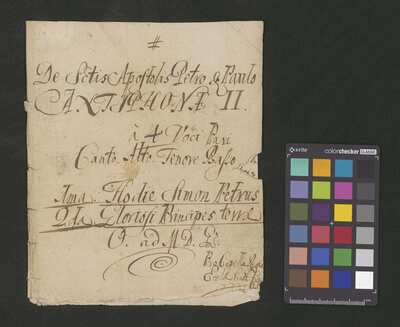 #
De Sctis Apostolis Petro & Paulo
ANTIPHONÆ II.
à 4 Voci Pari
Canto Alto Tenore Basso
Ima Hodie Simon Petrus
2da Gloriosi Principes terræ
O. ad M. D. G.
x-rite
colorchecker CLASSIC